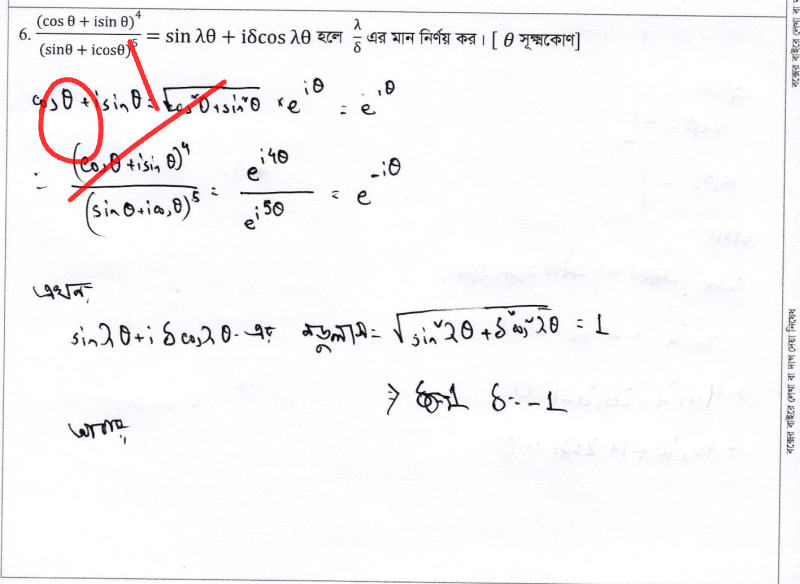 6. (cos θ + isin θ)^4 / (sinθ + icosθ)^5 = sin λθ + iδcos λθ হলে λ/δ এর মান নির্ণয় কর। [ θ সূক্ষ্মকোণ]
cosθ + isinθ = √(cos²θ + sin²θ) × e^{iθ} = e^{iθ}
∴ (cosθ + isinθ)^4 / (sinθ + icosθ)^5 = e^{i4θ} / e^{i5θ} = e^{-iθ}
এখন,
sinλθ + i δcosλθ এর মডুলাস = √(sin²λθ + δ²cos²λθ) = 1
⇒ δ = -1
আবার,
বক্সের বাইরে লেখা বা দাগ দেয়া নিষেধ